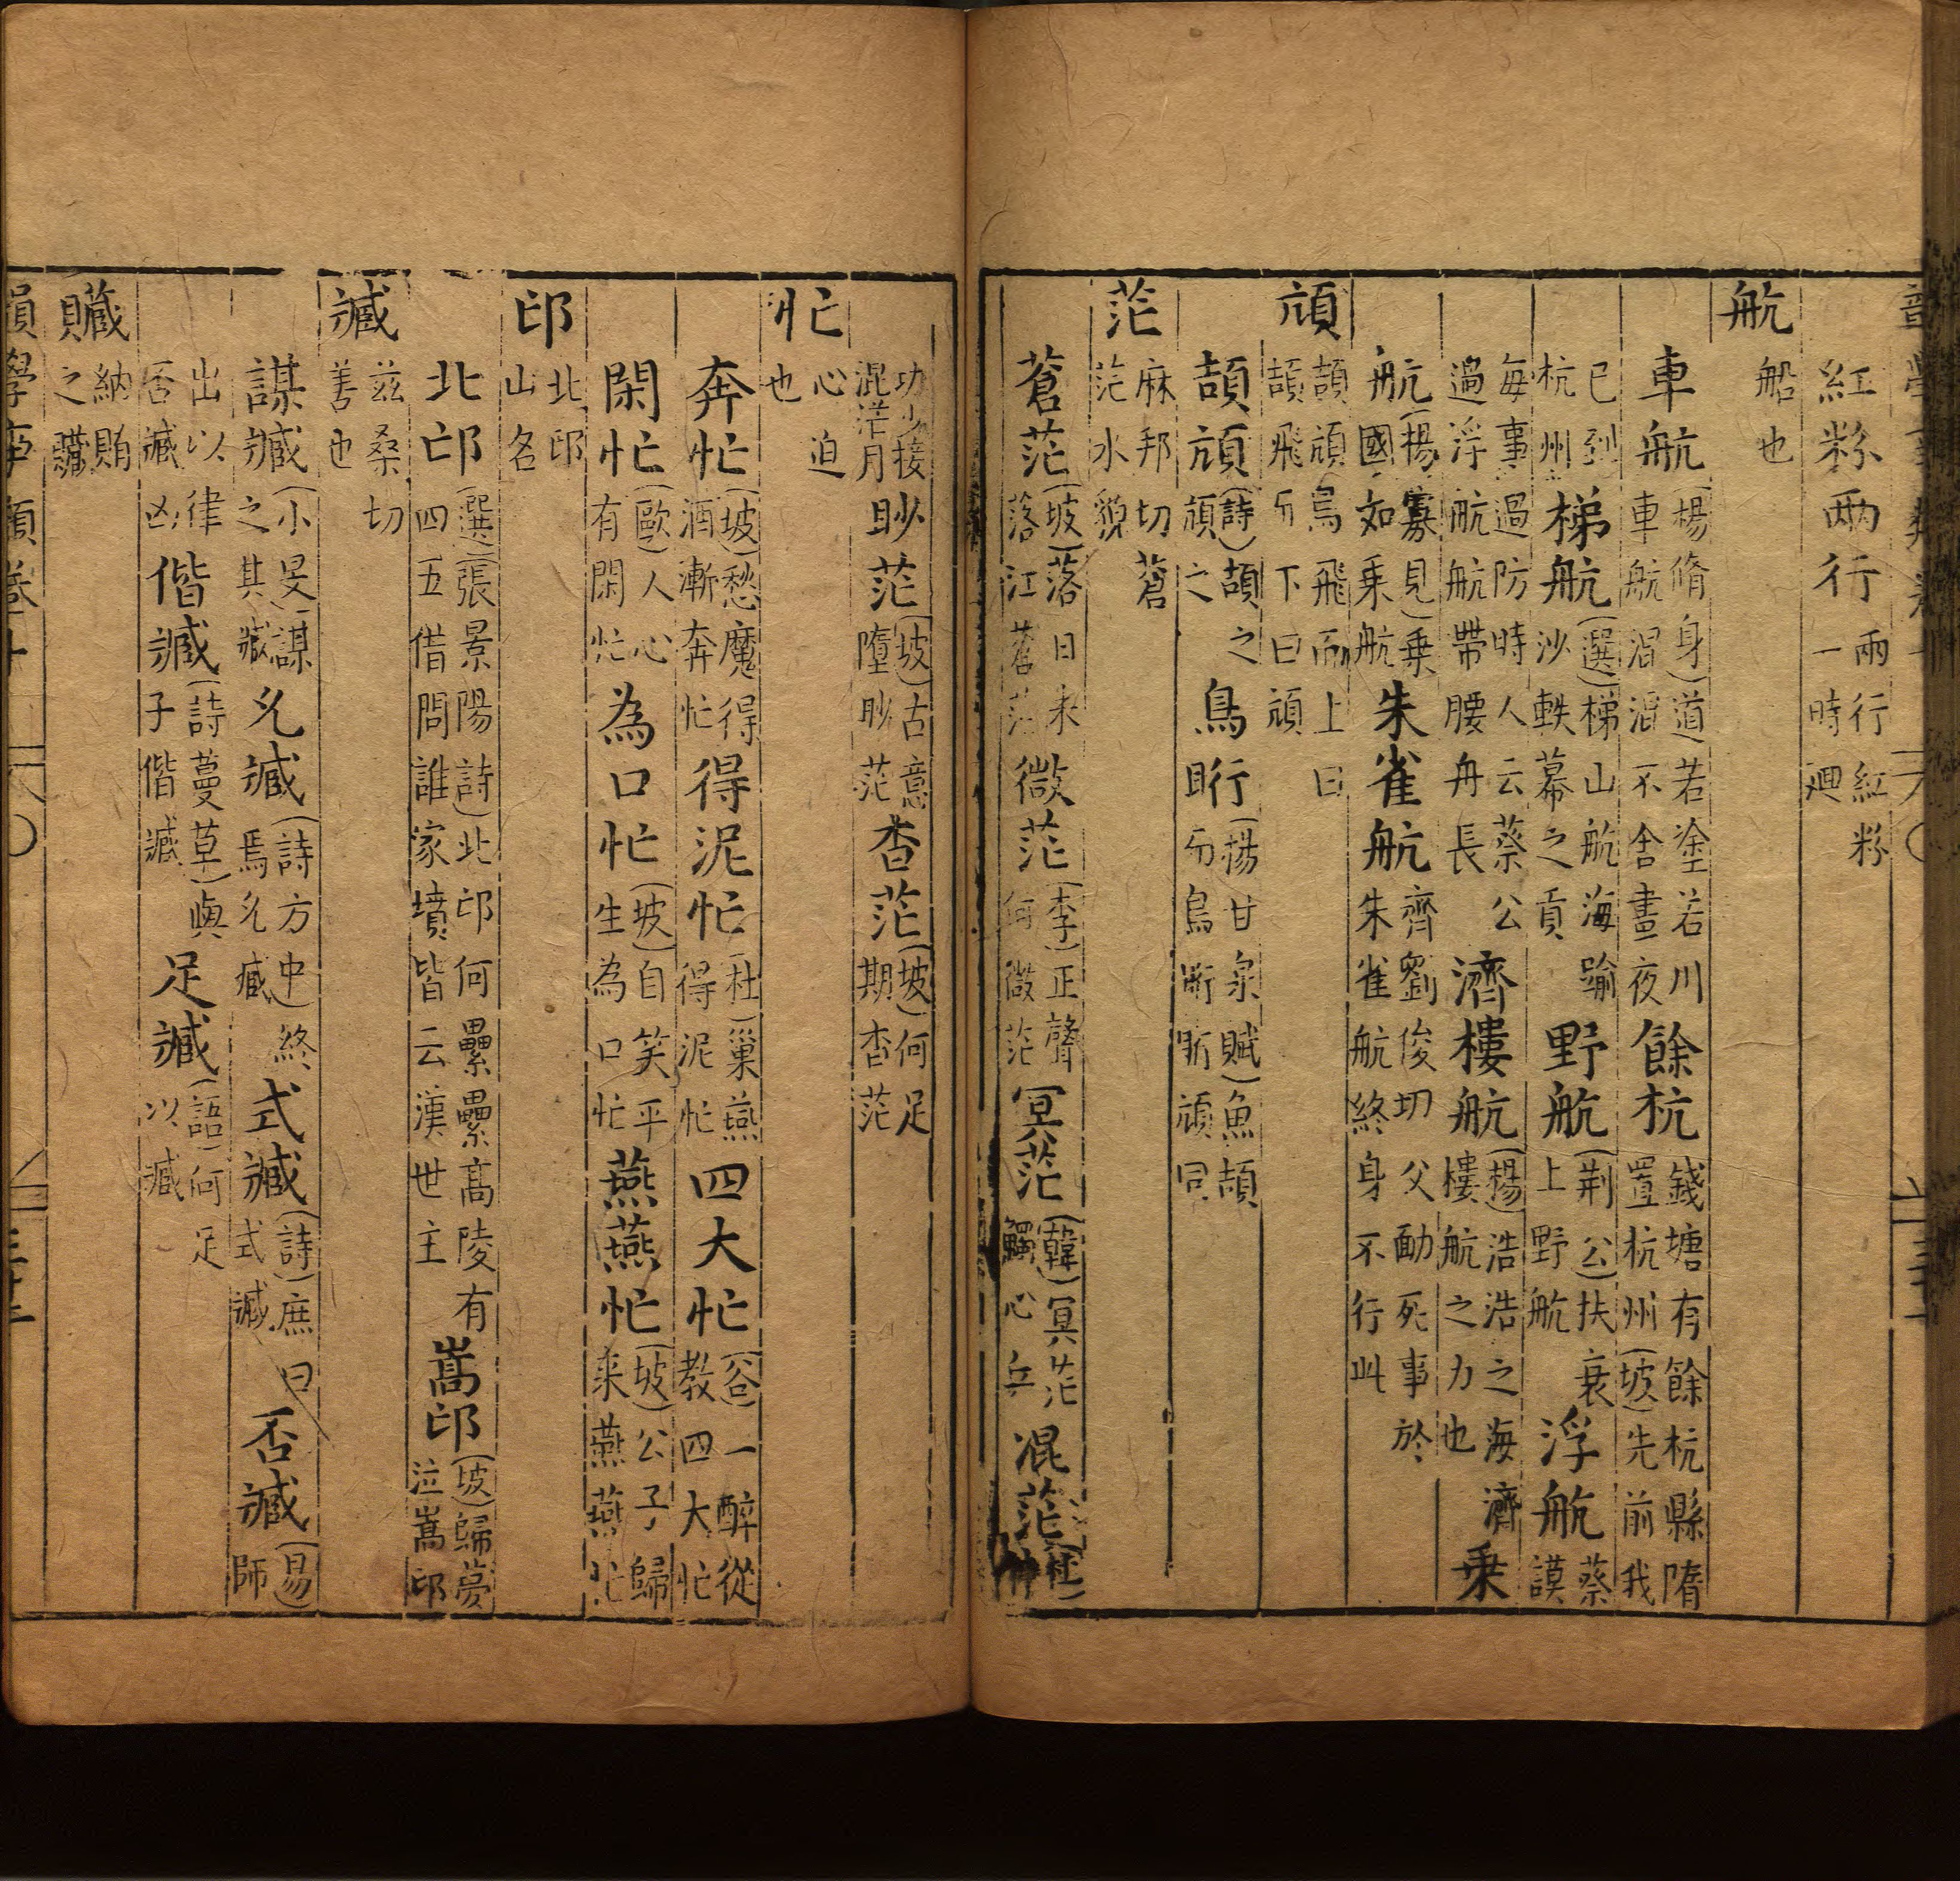 紅粉兩行兩行紅粉一時廻
航船也
車航(楊脩身)道若塗若川車航混混不舍晝夜餘杭錢塘有餘杭縣隋置杭州(坡)先前我
已到杭州梯航(選)梯山航海踰沙軼幕之貢野航(荆公)扶衰上野航浮航蔡謨
每事過防時人云蔡公過浮航航帶腰舟長濟樓航(楊)浩浩之海濟樓航之力也乗
航(楊寡見)乗國如乗航朱雀航齊劉俊切父勔死事於朱雀航終身不行此
頏頡頏鳥飛而上曰頡飛而下曰頏
頡頏(詩)頡之頏之鳥䀪(揚甘泉賦)魚頡而鳥䀪䀪頏同
茫麻邦切蒼茫水貌
蒼茫(坡)落日未落江蒼茫微茫(李)正聲何微茫冥茫(韓)冥茫觸心兵混茫(杜)
功少接混茫月眇茫(坡)古意墮眇茫杳茫(坡)何足期杳茫
忙心迫也
奔忙(坡)愁魔得酒漸奔忙得泥忙(杜)巢燕得泥忙四大忙(谷)一醉從教四大忙
閑忙(歐)人心有閑忙為口忙(坡)自笑平生為口忙燕燕忙(坡)公子歸来燕燕忙
邙北邙山名
北邙(選)(張景陽詩)北邙何纍纍髙陵有四五借問誰家墳皆云漢世主嵩邙(坡)歸夢泣嵩邙
臧兹桑切善也
謀臧(小旻)謀之其臧允臧(詩方中)終焉允臧式臧(詩)庶曰式臧否臧(易)師
出以律否臧凶偕臧(詩蔓草)與子偕臧足臧(語)何足以臧
贓納賄之贓
韻學事類卷十